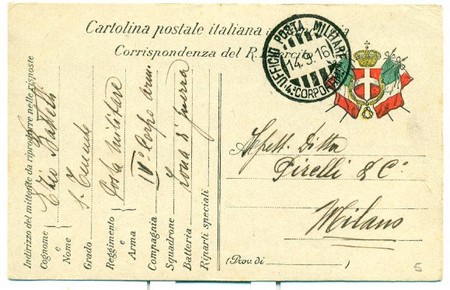 Cartolina postale italiana in
Corrispondenza del R.
UFFICIO POSTA MILITARE
14.3.16
4° CORPO
Indirizzo del mittente da riprodurre nelle risposte
Cognome e Nome
Grado
Reggimento e Arma
Compagnia
Squadrone
Batteria
Riparti speciali
S. Tenente
Posta Militare
IV° Corpo Arm.
zona di guerra
Spett. Ditta
Pirelli & Cº
Milano
(Prov. di )
5